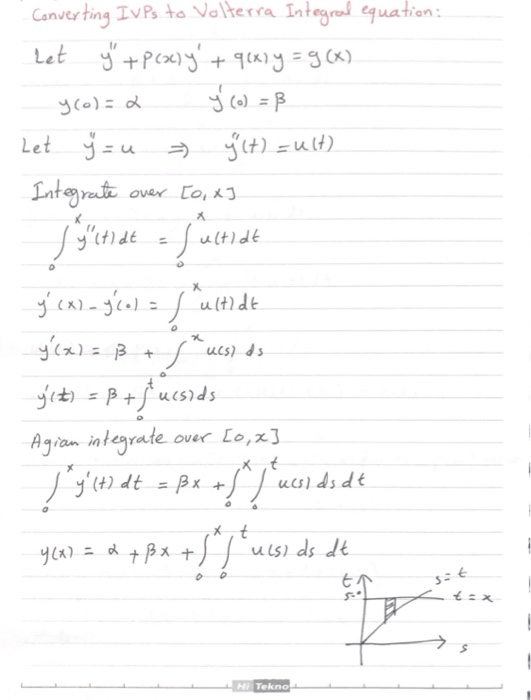 Converting IVPs to Volterra Integral equation:
Let y'' + p(x)y' + q(x)y = g(x)
y(0) = α y'(0) = β
Let y'' = u ⇒ y''(t) = u(t)
Integrate over [0,x]
∫₀ˣ y''(t) dt = ∫₀ˣ u(t) dt
y'(x) - y'(0) = ∫₀ˣ u(t) dt
y'(x) = β + ∫₀ˣ u(s) ds
y'(t) = β + ∫₀ᵗ u(s) ds
Agian integrate over [0,x]
∫₀ˣ y'(t) dt = βx + ∫₀ˣ ∫₀ᵗ u(s) ds dt
y(x) = α + βx + ∫₀ˣ ∫₀ᵗ u(s) ds dt
t s=t
s=0 t=x
s
Hi Tekno